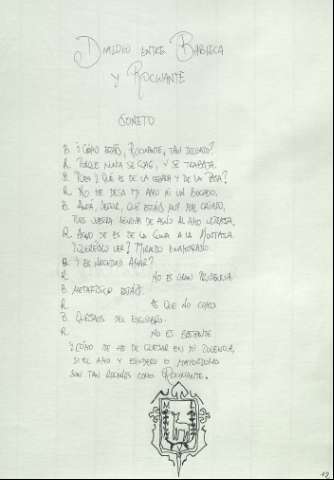 DIÁLOGO ENTRE BABIECA
Y ROCINANTE
SONETO
B. ¿CÓMO ESTÁIS, ROCINANTE, TAN DELGADO?
R. PORQUE NUNCA SE COME, Y SE TRABAJA.
B. PUES ¿QUÉ ES DE LA CEBADA Y DE LA PAJA?
R. NO ME DEJA MI AMO NI UN BOCADO.
B. ANDÁ, SEÑOR, QUE ESTÁIS MUY MAL CRIADO,
PUES VUESTRA LENGUA DE ASNO AL AMO ULTRAJA.
R. ASNO SE ES DE LA CUNA A LA MORTAJA.
¿QUERÉISLO VER? MIRALDO ENAMORADO.
B. ¿ES NECEDAD AMAR?
R. NO ES GRAN PRUDENCIA.
B. METAFÍSICO ESTÁIS.
R. ES QUE NO COMO.
B. QUEJAOS DEL ESCUDERO.
R. NO ES BASTANTE.
¿CÓMO ME HE DE QUEJAR EN MI DOLENCIA,
SI EL AMO Y ESCUDERO O MAYORDOMO
SON TAN ROCINES COMO ROCINANTE.